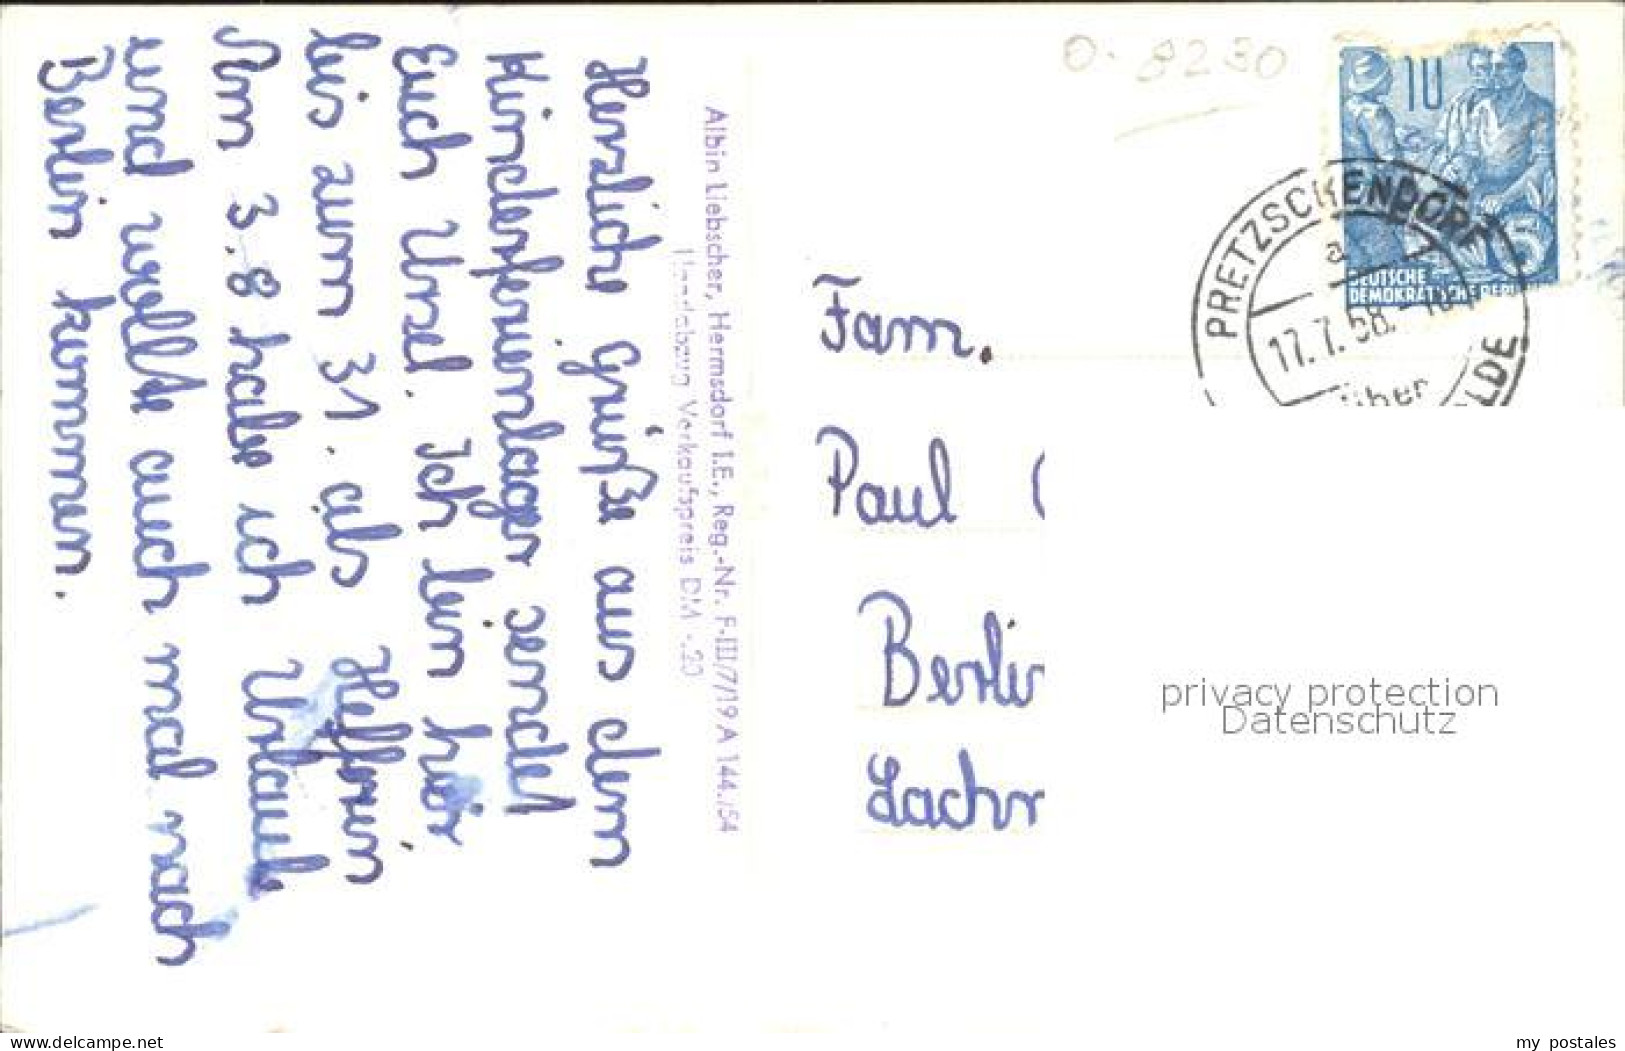 Herzliche Grüße aus dem
Kinderferienlager sendet
Euch Ursel. Ich bin hier
bis zum 31. als Helferin
Am 3.8 habe ich Urlaub
und wollte auch mal nach
Berlin kommen.
Albin Liebscher, Hermsdorf i.E., Reg.-Nr. F-III/7/19 A 144./54
Verkaufspreis DM -.20
0-8230
10
5
DEUTSCHE
DEMOKRATISCHE REPUBLIK
PRETZSCHENDORF
a
17.7.58.
über
LDE
Fam.
Paul
Berlin
Lachn
privacy protection
Datenschutz
www.ansichtskartenversand.com
my postales